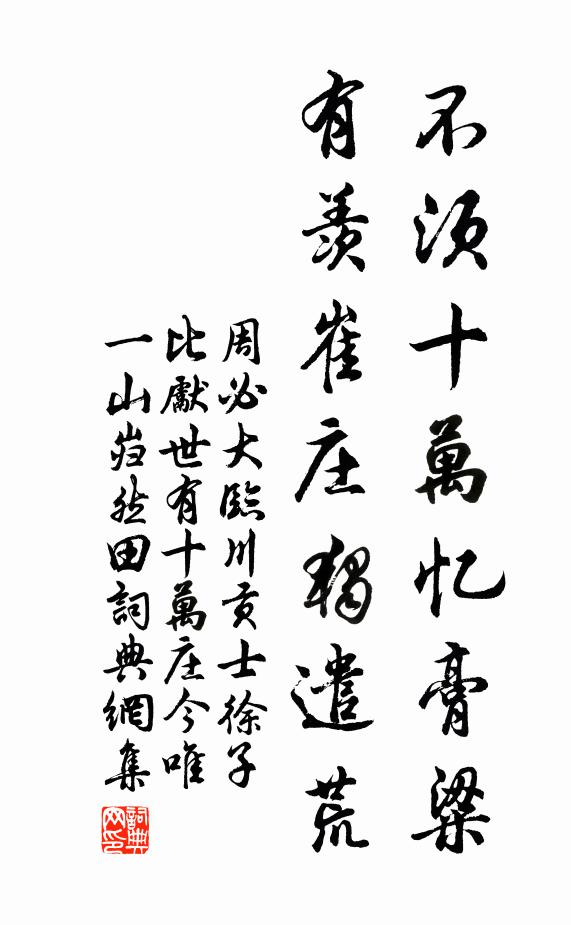 不須十萬忆膏粱
有羨崔庄獨遣荒
周必大臨川貢士徐子
比獻世有十萬庄今唯
一山巋然田詞典網集
詞典網印